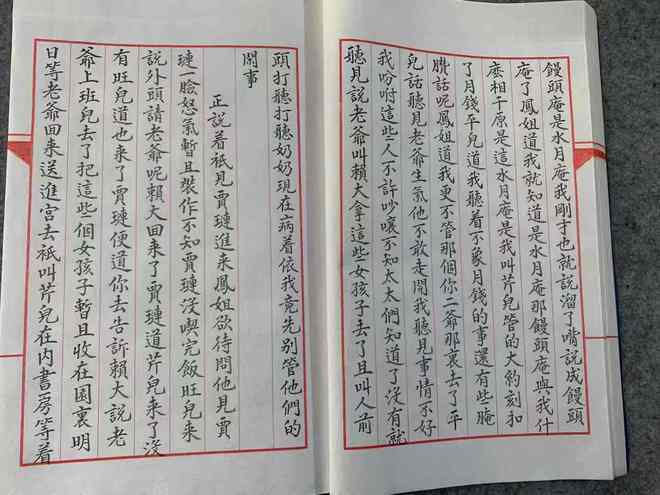 饅頭庵是水月庵我剛才也就説溜了嘴説成饅頭
庵了鳳姐道我就知道是水月庵那饅頭庵與我什
麽相干原是這水月庵是我叫芹兒管的大約刻扣
了月錢平兒道我聽着不象月錢的事還有些腌
臢話呢鳳姐道我更不管那個你二爺那裏去了平
兒話聽見老爺生氣他不敢走開我聽見事情不好
我吩咐這些人不許吵嚷不知太太們知道了沒有就
聽見説老爺叫賴大拿這些女孩子去了且叫人前
頭打聽打聽奶奶現在病着依我竟先别管他們的
閒事
正説着祇見賈璉進來鳳姐欲待問他見賈
璉一臉怒氣暫且裝作不知賈璉沒喫完飯旺兒来
説外頭請老爺呢賴大回来了賈璉道芹兒来了沒
有旺兒道也来了賈璉便道你去告訴賴大說老
爺上班兒去了把這些個女孩子暫且收在園裏明
日等老爺回来送進宫去祇叫芹兒在内書房等着